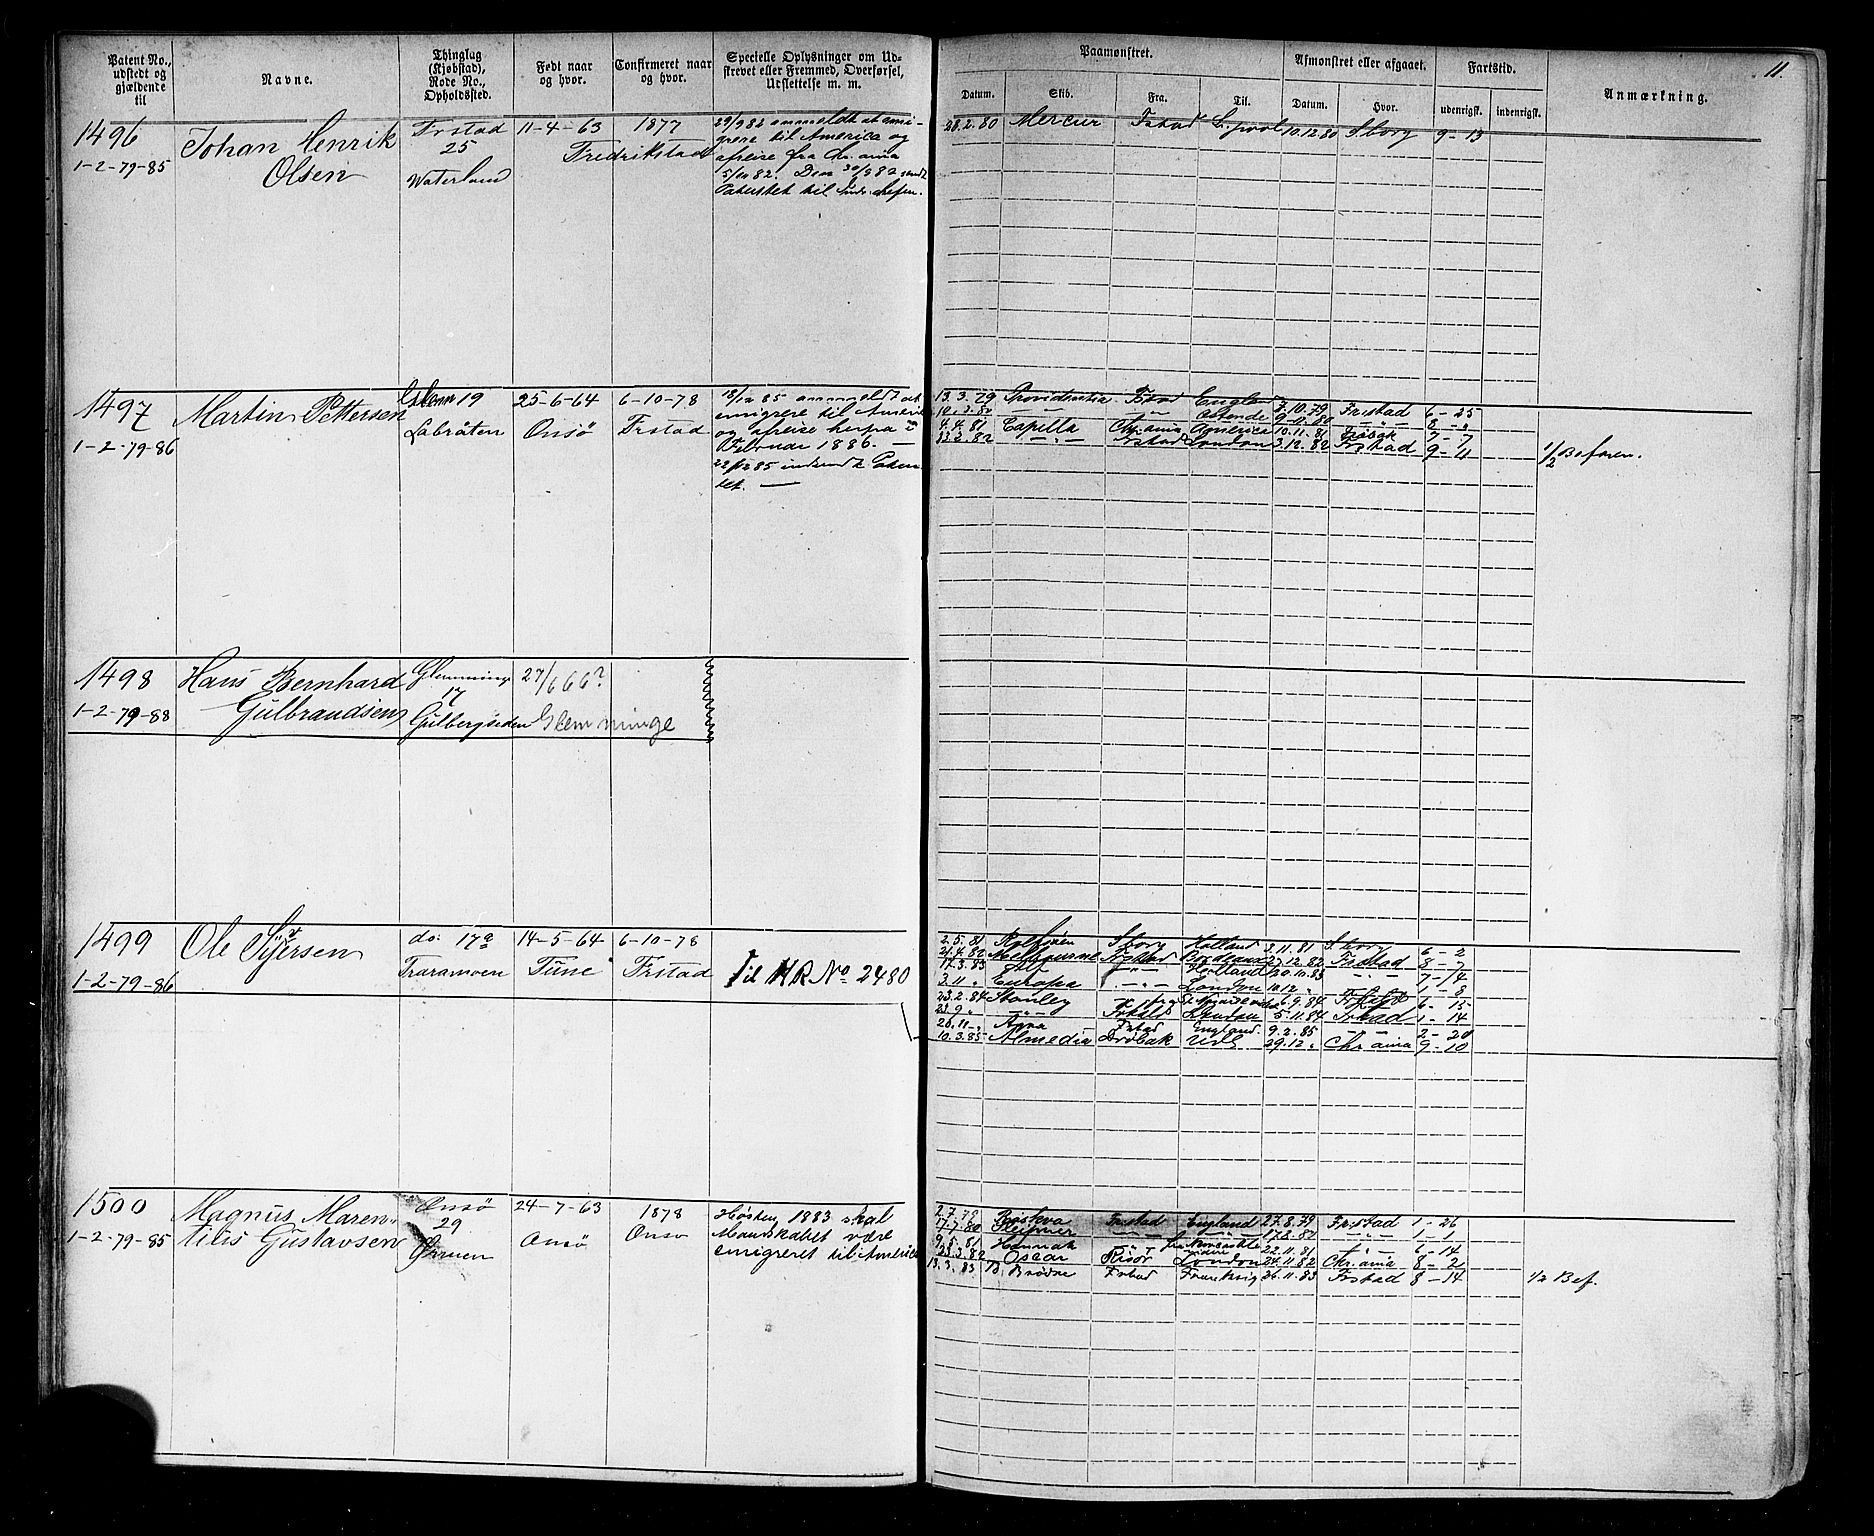 Patent No., udstedt og gjældende til
Navne.
Thinglag (Kjøbstad), Rode No., Opholdssted.
Født naar og hvor.
Confirmeret naar og hvor.
Specielle Oplysninger om Udskrevet eller Fremmed, Overførsel, Udslettelse m. m.
Paamønstret.
Datum.
Skib.
Fra.
Til.
Afmønstret eller afgaaet.
Datum.
Hvor.
Fartstid.
udenrigsk.
indenrigsk.
Anmærkning.
11.
1496
1-2-79-85
Johan Henrik
Olsen
Frstad
25
Waterland
11-4-63
1877
Fredrikstad
29/9 82 anmeldt at emi-
grere til America og
afreise fra Chr.ania
5/10 82. Den 30/9 82 sendt
Patentet til
28.2.80 Mercur Fstad L.pool 10.12.80 S.borg 9-13
1497
1-2-79-86
Martin Pettersen
Glem 19
Labråten
25-6-64
Onsö
6-10-78
Frstad
18/12 85 anmeldt at
emigrere til Amerika
og afreise herfra i
Februar 1886. —
22/12 85 indsendt Paten-
tet. —
13.3.79 Providentia Fstad Engld 7.10.79 Frstad 6-25
10.3.80 — — — „ — Ostende 9.11.80 — „ — 8 - „
4.4.81 Capella Chr.ania America 10.11.81 7-7
13.3.82 — „ — Frstad London 3.12.82 Frstad 9-11
1/2 Befaren.
1498
1-2-79-88
Hans Bernhard
Gulbrandsen
Glemminge
17
Gulbergsiden
27/6 66?
Glemminge
1499
1-2-79-86
Ole Syversen
do. 17a
Traramoen
14-5-64
Tune
6-10-78
Frstad
Til HR No 2480
2.5.81 S.borg Holland 2.11.81 S.borg 6-2
21.4.82 Melbourne Frstad 27.12.82 Frstad 8-7
17.3.83 — „ — Holland 20.10.83 — „ — 7-14
3.11 „ Europa — „ — London 10.12 „ 1-8
23.2.84 Stanley fra 6.9.84 6-15
23.9 „ — „ — London 5.11.84 Frstad 1-14
28.11 „ Anna Frstad England 9.2.85 — „ — 2-20
10.3.85 Almedia Dröbak Udl 29.12 „ Chr.ania 9-10
1500
1-2-79-85
Magnus Maren-
tilis Gustavsen
Onsö
29
24-7-63
Onsö
1878
Onsö
Hösten 1883 skal
Mandskabet være
emigreret til Amerika
2.7.79 Frstad England 27.8.79 Frstad 1-26
17.7.80 — „ — — „ — — „ — 1-1
9.5.81 Hannah fra Newcastle 22.11.81 — „ — 6-14
23.3.82 Oscar Risör London 24.11.82 Chr.ania 8-2
13.3.83 Brödre Frstad Frankrig 26.11.83 Frstad 8-14
1/2 Bef.